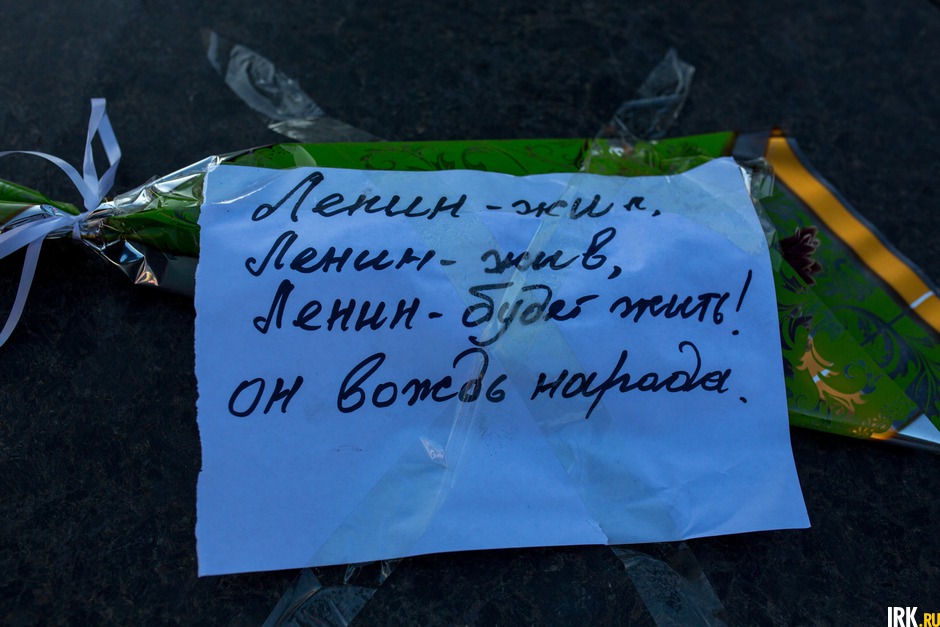 Ленин - жил,
Ленин - жив,
Ленин - будет жить!
он вождь народа.
IRK.RU